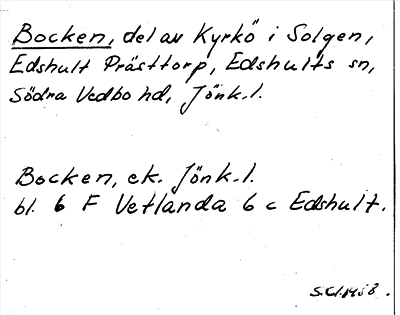 Bocken, del av Kyrkö i Solgen,
Edshult Prästtorp, Edshults sn,
Södra Vedbo hd, Jönk.l.
Bocken, ek. Jönk.l.
bl. 6 F Vetlanda 6 c Edshult.